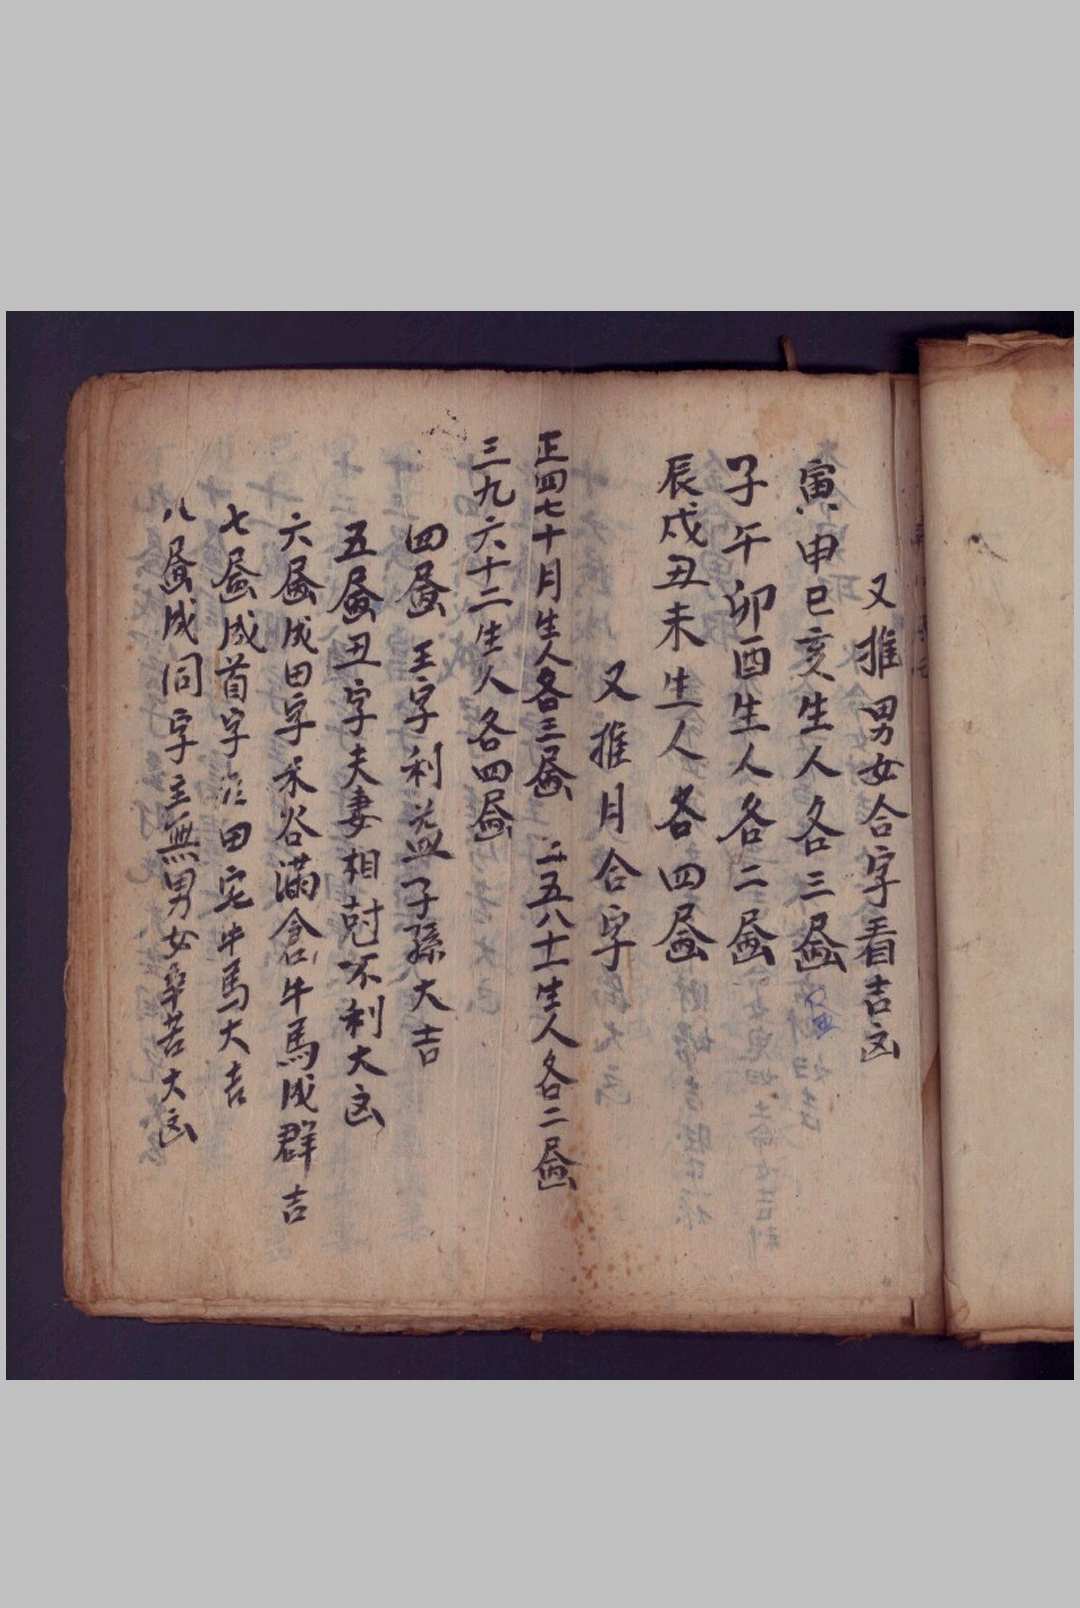 又推男女合字看吉凶
寅申巳亥生人各三畫
子午卯酉生人各二畫
辰戌丑未生人各四畫
又推月合字
正四七十月生人各三畫 二五八十一生人各二畫
三九六十二生人各四畫
四畫王字利益子孫大吉
五畫丑字夫妻相尅不利大凶
六畫成田字禾谷滿倉牛馬成群吉
七畫成首字田宅牛馬大吉
八畫成同字主無男女辛苦大凶